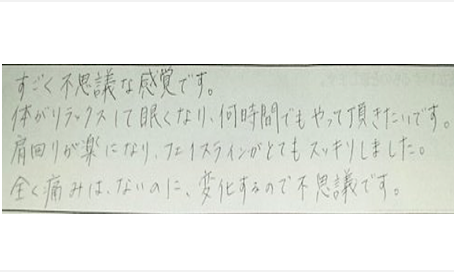 すごく不思議な感覚です。
体がリラックスして眠くなり、何時間でもやって頂きたいです。
肩回りが楽になり、フェイスラインがとてもスッキリしました。
全く痛みは、ないのに、変化するので不思議です。